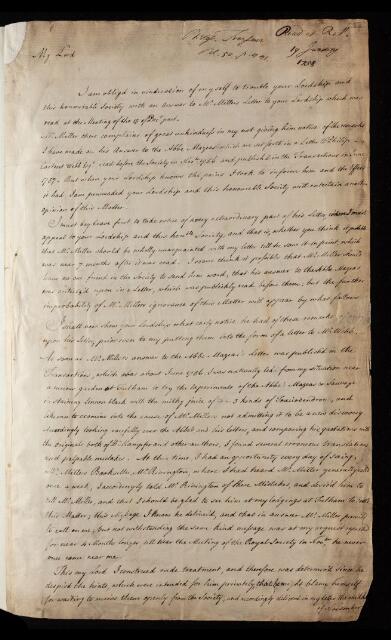 Read at R.S.
19 January
1758
My Lord
I am obliged in vindication of myself to trouble your Lordship and
this honourable Society with an Answer to Mr Miller's Letter to your Lordship which was
read at the Meeting of the of Decr past.
Mr Miller there complains of great unkindness in my not giving him notice of the remarks
I have made on his Answer to the Abbe Mazeas which are set forth in a Letter to Philip
Carteret Webb Esqr read before the Society in Novr 1756 and published in the Transactions in June
1757. But when your Lordship knows the pains I took to inform him and the
it had, I am persuaded your Lordship and this honourable Society will entertain another
opinion of this Matter.
I must beg leave first to take notice of a very extraordinary part of his Letter, wherein I must
appeal to your Lordship and this honble Society, and that is, whether you think it probable
that Mr Miller should be wholly unacquainted with my letter till he saw it in print which
was near 7 months after it was read. I scarce think it possible that Mr Miller should
have no one friend in the Society to send him word, that his answer to the Abbe Mazeas
was criticised upon in a Letter, which was publickly read before them; but the further
improbability of Mr Millers ignorance of this Matter will appear by what follows
I shall now shew your Lordship what early notice he had of these remarks
upon his Letter, prior even to my putting them into the form of a letter to Mr Webb.
As soon as Mr Millers answer to the Abbe Mazeas's Letter was publish'd in the
Transactions, which was about June 1756 I was naturally led, from my situation near
a curious garden at Fulham to try the experiments of the Abbe Mazeas & Sauvages
of staining Linnen black with the milky juice of 2 or 3 kinds of Toxicodendron, and
likewise to examine into the cause of Mr Millers not admitting it to be a new discovery
Accordingly looking carefully over the Abbes and his Letters, and comparing his quotations with
the originals both of Dr Kaempfer and other authors, I found several erroneous translations
and palpable mistakes. At this time, I had an opportunity every day of seeing
Mr Millers Bookseller Mr Rivington, where I had heard Mr Miller generally called
once a week, I accordingly told Mr Rivington of these Mistakes, and desired him to
tell Mr Miller, and that I should be glad to see him at my lodgings at Fulham to
this Matter; this message I know he delivered, and that in answer Mr Miller promised
to call on me, But not withstanding the same kind message was at my request repeated
for near 4 Months longer till near the Meeting of the Royal Society in Novr he never
once came near me.
This my Lord I construed rude treatment, and therefore was determined since he
despised the hints, which were intended for him privately that he may blame himself
for waiting to receive them openly from the Society, and accordingly delivered in my letter the middle
of November